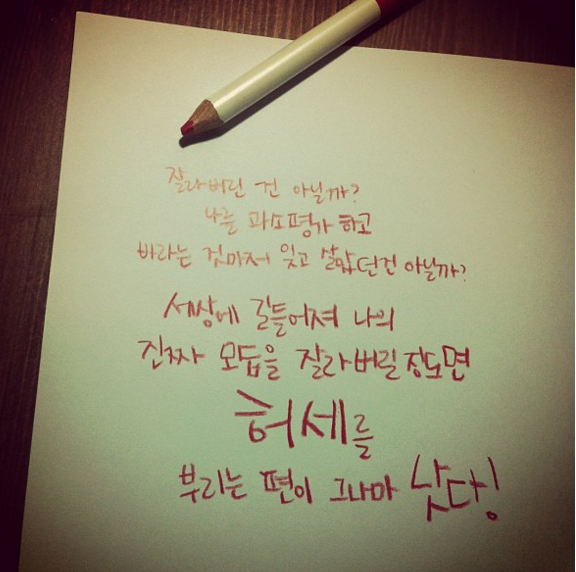 잘라버린 건 아닐까?
나를 과소평가 하고
바라는 것마저 잊고 살았던건 아닐까?
세상에 길들어져 나의
진짜 모습을 잘라버릴정도면
허세를
부리는 편이 그나마 낫다!